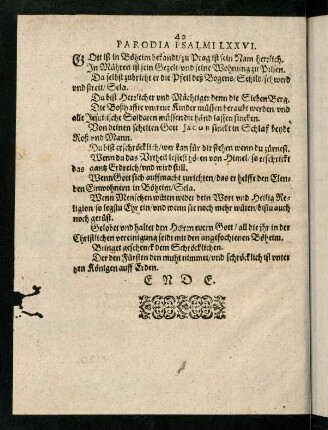 40
PARODIA PSALMI LXXVI.
GOtt ist in Böheim bekandt/ zu Prag ist sein Nam herrlich.
In Mähren ist sein Gezelt vnd seine Wohnung zu Pilsen.
Da selbst zubricht er die Pfeil deß Bogens/ Schild/ schwerd
vnd streit/ Sela.
Du bist Herrlicher vnd Mächtiger denn die Sieben Berg.
Die Boßhaffte vntreue Kinder müssen beraubt werden/ vnd
alle Jesuitische Soldaten müssen die händ lassen sincken.
Von deinen schelten Gott JACOB sinckt in Schlaf beyde
Roß vnd Mann.
Du bist erschröcklich/ wer kan für dir stehen wenn du zürnest.
Wenn du das Vrtheil lessest hören von Himel/ so erschrickt
das gantz Erdreich/ vnd wird still.
Wenn Gott sich auffmacht zu richten/ das er helffe den Elen-
den Einwohnern in Böheim/ Sela.
Wenn Menschen wüten wider dein Wort vnd Heilig Re-
ligion so legstu Ehr ein/ vnd wenn sie noch mehr wüten/ bistu auch
noch gerüst.
Gelobet vnd haltet den HErrn euern Gott/ all die ihr in der
Christlichen vereinigung seidt mit den angefochtenen Böheim.
Bringet geschenck dem Schröcklichen.
Der den Fürsten den muht nimmet/ vnd schröcklich ist vnter
den Königen auff Erden.
E N D E.